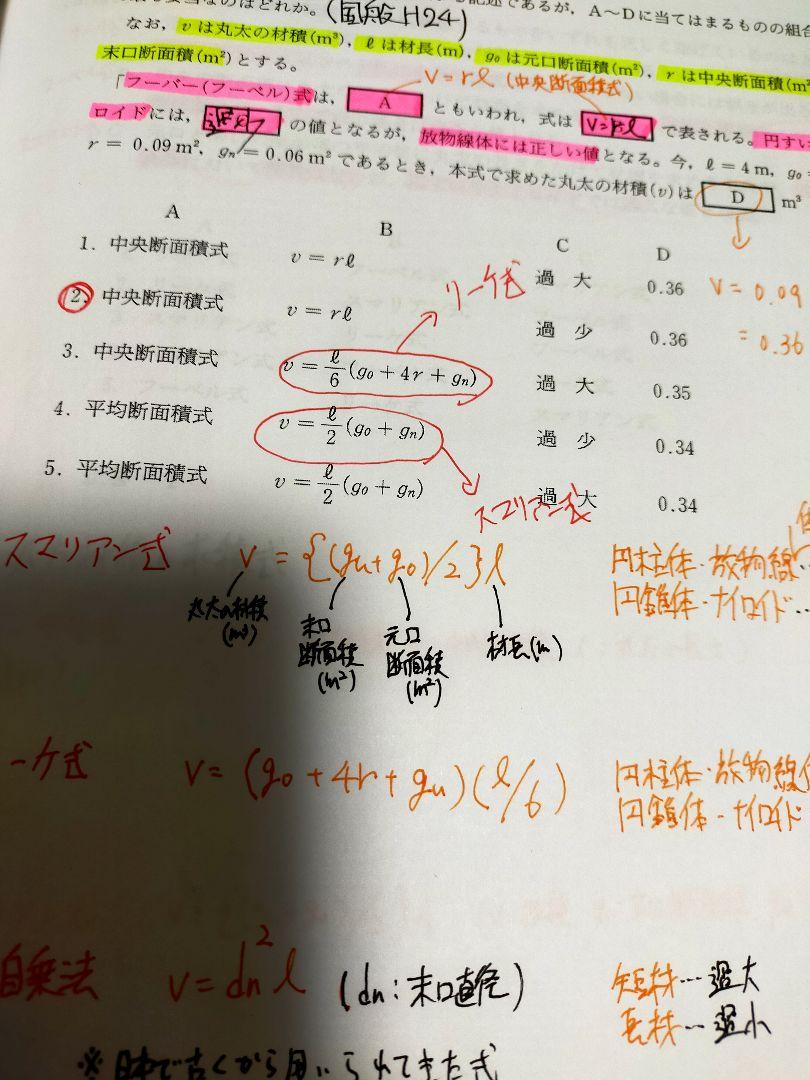 なのはどれか。(国般H24)
述であるが，A～Dに当てはまるものの組合
なお，vは丸太の材積(m³)，ℓは材長(m)，g₀は元口断面積(m²)，rは中央断面積(m²
末口断面積(m²)とする。
V=rℓ (中央断面積式)
「フーバー(フーベル)式は， A ともいわれ，式は V=rℓ で表される。円すい
ロイドには， の値となるが，放物線体には正しい値となる。今，ℓ＝4m，g₀＝
r＝0.09m²，gₙ＝0.06m²であるとき，本式で求めた丸太の材積(v)は D m³
A B C D
1．中央断面積式 v＝rℓ 過 大 0.36
V=0.09
2．中央断面積式 v＝rℓ 過 少 0.36
=0.36
リーケ式
3．中央断面積式 v＝ℓ/6(g₀＋4r＋gₙ) 過 大 0.35
4．平均断面積式 v＝ℓ/2(g₀＋gₙ) 過 少 0.34
5．平均断面積式 v＝ℓ/2(g₀＋gₙ) 過 大 0.34
スマリアン式
スマリアン式 V={(gn+g₀)/2}ℓ
円柱体・放物線
円錐体・ナイロイド…
丸太の材積(m³)
末口断面積(m²)
元口断面積(m²)
材長(m)
ーケ式 V=(g₀+4r+gn)(ℓ/6)
円柱体・放物線
円錐体・ナイロイド
自乗法 V=dn²ℓ (dn:末口直径)
短材…過大
長材…過小
※日本で古くから用いられてきた式